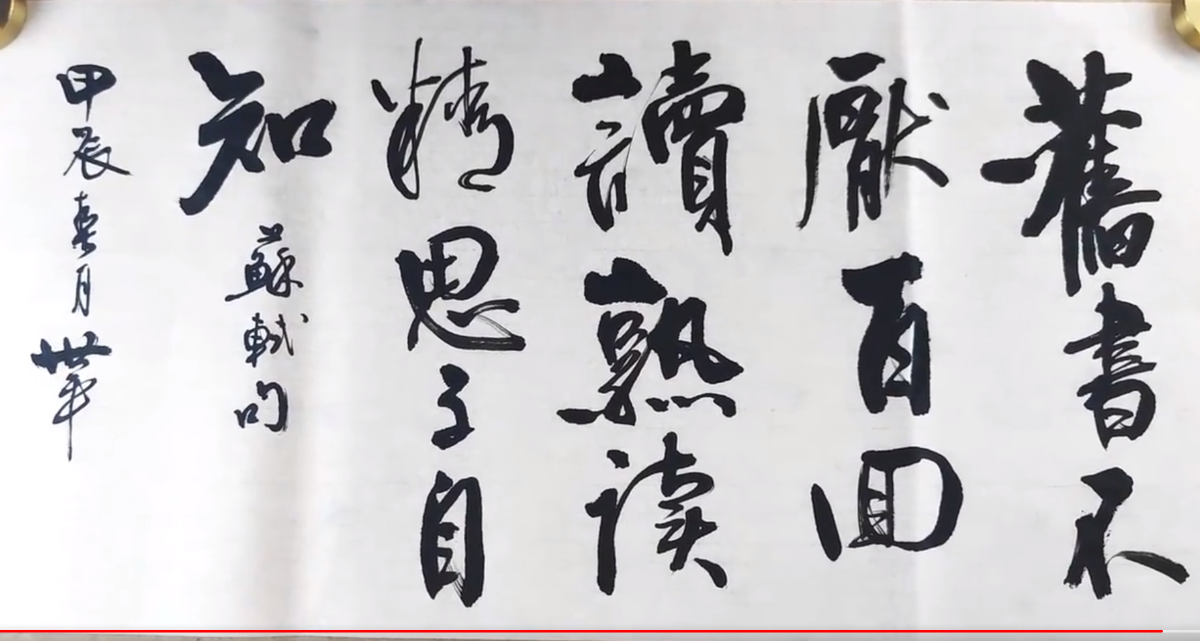 舊書不
厭百回
讀熟读
精思子自
知 蘇軾句
甲辰春月